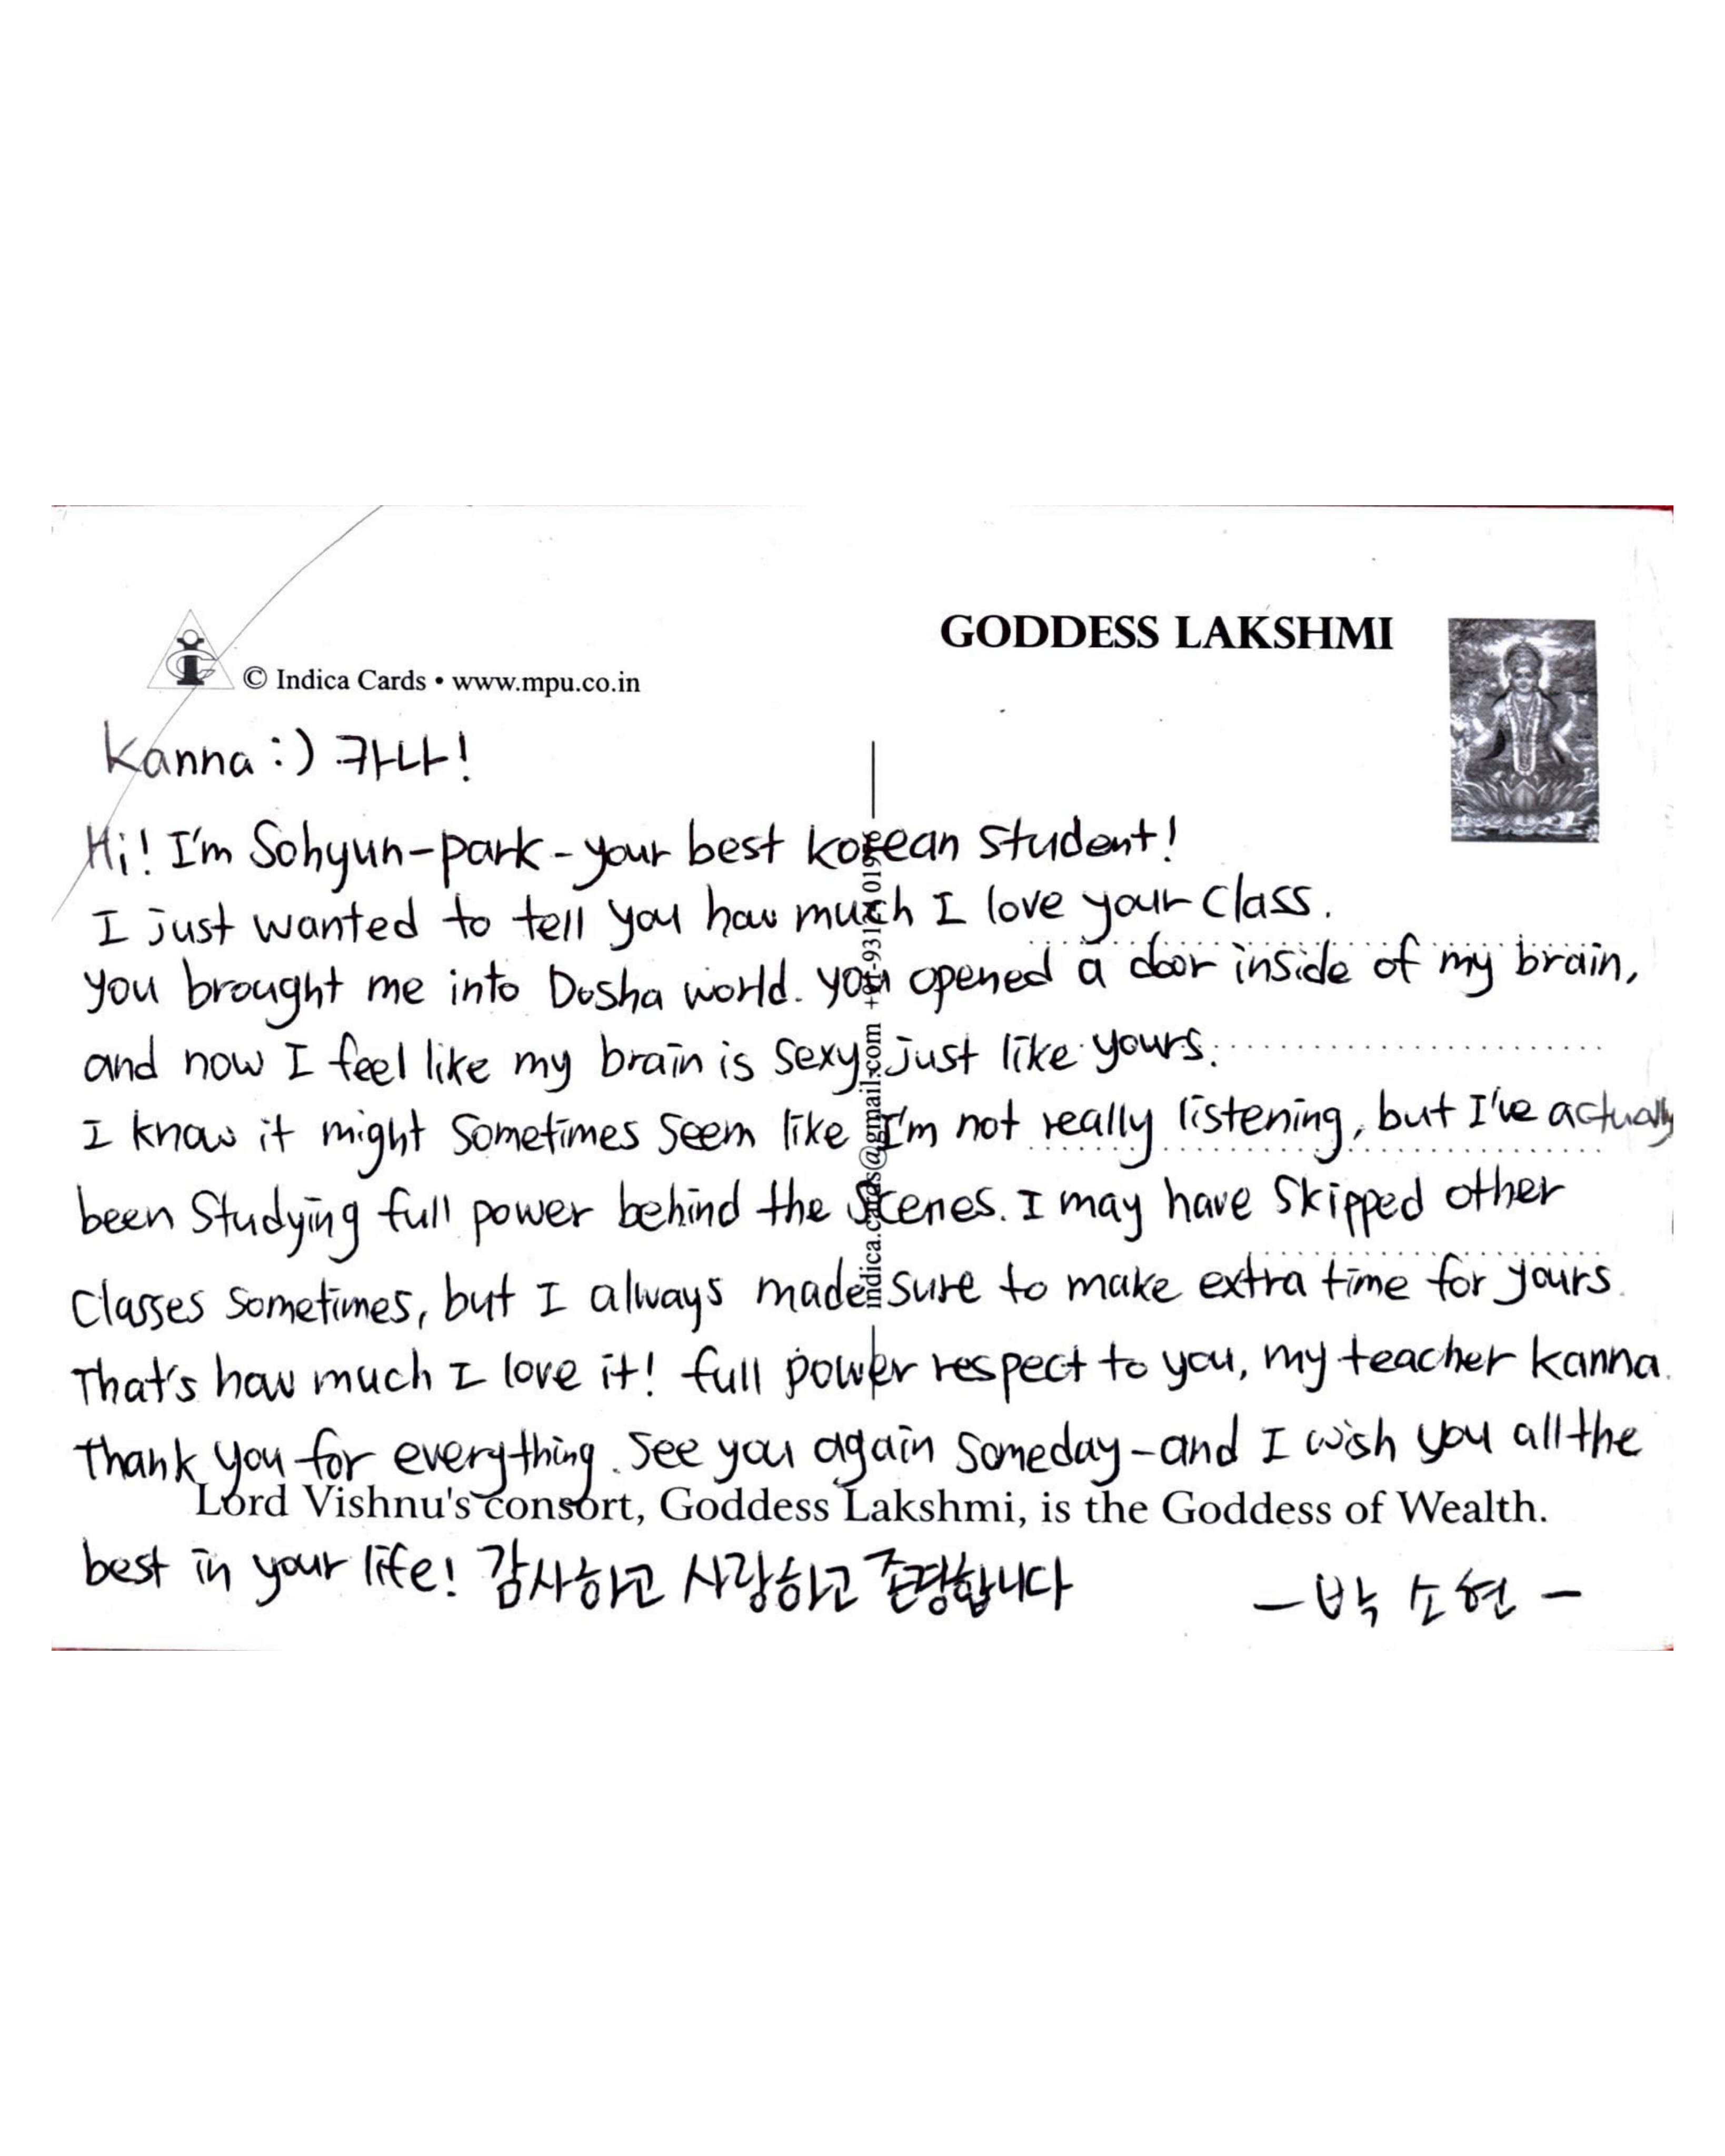 GODDESS LAKSHMI
© Indica Cards • www.mpu.co.in
Kanna :) 카나!
Hi! I'm Sohyun-park - your best korean student!
I just wanted to tell you how much I love your class.
you brought me into Dosha world. you opened a door inside of my brain,
and now I feel like my brain is sexy just like yours.
I know it might sometimes seem like I'm not really listening, but I've actually
been studying full power behind the scenes. I may have skipped other
classes sometimes, but I always made sure to make extra time for yours.
That's how much I love it! full power respect to you, my teacher kanna.
Thank you for everything. See you again someday - and I wish you all the
Lord Vishnu's consort, Goddess Lakshmi, is the Goddess of Wealth.
best in your life! 감사하고 사랑하고 존경합니다
- 박 소현 -
indica.cards@gmail.com